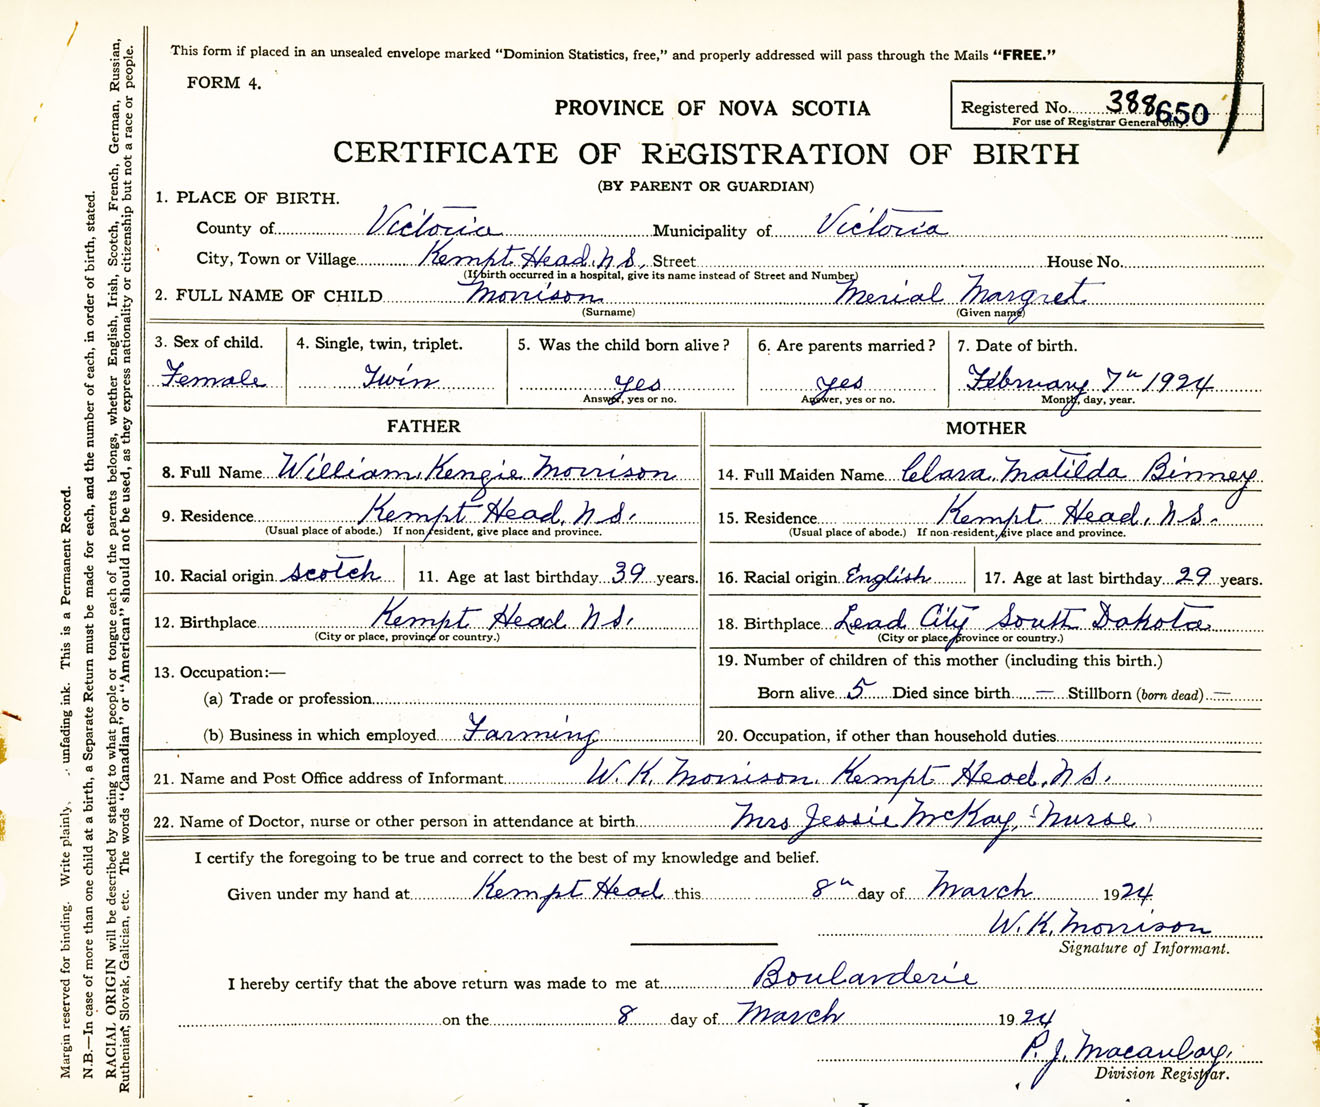 This form if placed in an unsealed envelope marked “Dominion Statistics, free,” and properly addressed will pass through the Mails “FREE.”
FORM 4.
PROVINCE OF NOVA SCOTIA
Registered No. 388650
For use of Registrar General only.
CERTIFICATE OF REGISTRATION OF BIRTH
(BY PARENT OR GUARDIAN)
1. PLACE OF BIRTH.
County of Victoria Municipality of Victoria
City, Town or Village Kempt Head, N.S. Street House No.
(If birth occurred in a hospital, give its name instead of Street and Number)
2. FULL NAME OF CHILD Morrison Merial Margret
(Surname) (Given name)
3. Sex of child. 4. Single, twin, triplet. 5. Was the child born alive? 6. Are parents married? 7. Date of birth.
Female Twin Yes Yes February 7th 1924
Answer, yes or no. Answer, yes or no. Month, day, year.
FATHER MOTHER
8. Full Name William Kengie Morrison 14. Full Maiden Name Clara Matilda Binney
9. Residence Kempt Head, N.S. 15. Residence Kempt Head, N.S.
(Usual place of abode.) If non resident, give place and province. (Usual place of abode.) If non-resident, give place and province.
10. Racial origin Scotch 11. Age at last birthday 39 years. 16. Racial origin English 17. Age at last birthday 29 years.
12. Birthplace Kempt Head N.S. 18. Birthplace Lead City South Dakota
(City or place, province or country.) (City or place, province or country.)
13. Occupation:— 19. Number of children of this mother (including this birth.)
(a) Trade or profession Born alive 5 Died since birth — Stillborn (born dead) —
(b) Business in which employed Farming 20. Occupation, if other than household duties
21. Name and Post Office address of Informant W. K. Morrison. Kempt Head, N.S.
22. Name of Doctor, nurse or other person in attendance at birth Mrs Jessie McKay, Nurse
I certify the foregoing to be true and correct to the best of my knowledge and belief.
Given under my hand at Kempt Head this 8th day of March 1924
W. K. Morrison
Signature of Informant.
I hereby certify that the above return was made to me at Boularderie
on the 8 day of March 1924
P. J. Macaulay.
Division Registrar.
Margin reserved for binding. Write plainly, unfading ink. This is a Permanent Record.
N.B.—In case of more than one child at a birth, a Separate Return must be made for each, and the number of each, in order of birth, stated.
RACIAL ORIGIN will be described by stating to what people or tongue each of the parents belongs, whether English, Irish, Scotch, French, German, Russian,
Ruthenian, Slovak, Galician, etc. The words “Canadian” or “American” should not be used, as they express nationality or citizenship but not a race or people.